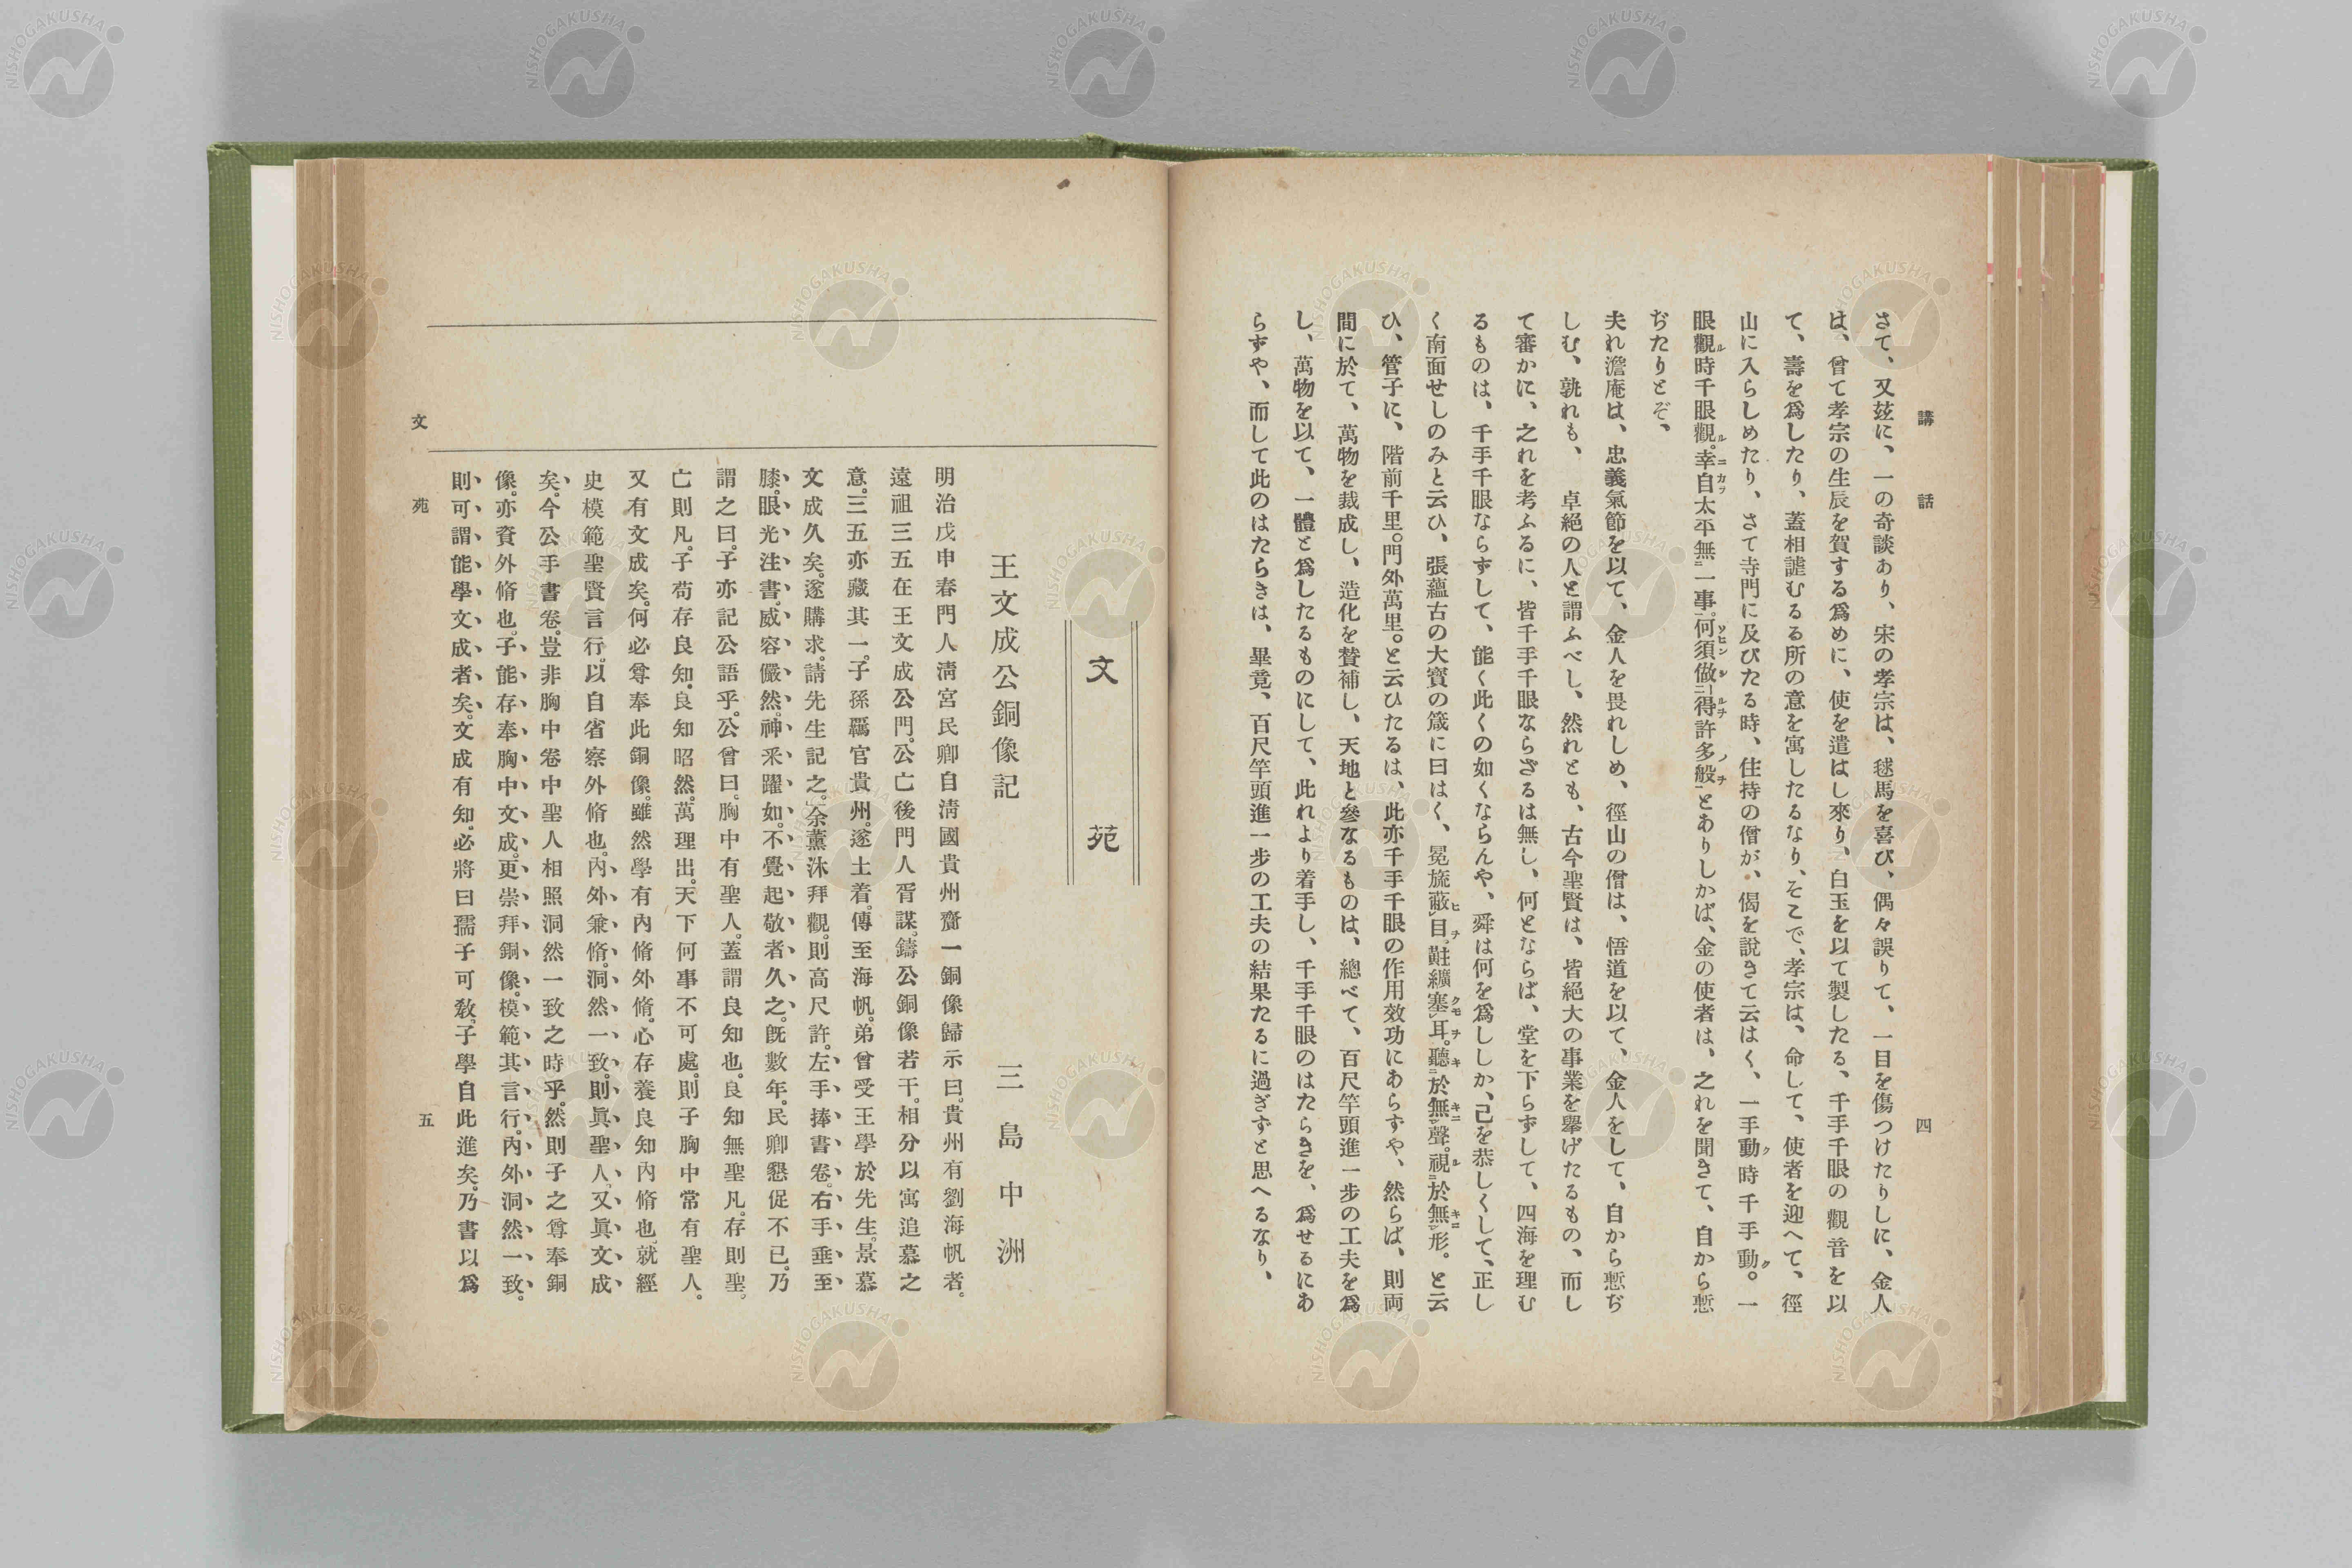 講話
四
さて、又玆に、一の奇談あり、宋の孝宗は、毬馬を喜び、偶々誤りて、一目を傷つけたりしに、金人
は、曾て孝宗の生辰を賀する爲めに、使を遣はし來り、白玉を以て製したる、千手千眼の觀音を以
て、壽を爲したり、蓋相謔むるる所の意を寓したるなり、そこで、孝宗は、命して、使者を迎へて、徑
山に入らしめたり、さて寺門に及びたる時、住持の僧が、偈を說きて云はく、一手動ク時千手動ク。一
眼觀ル時千眼觀ル。幸ニ自カラ太平無一事。何須做得許多般とありしかば、金の使者は、之れを聞きて、自から慙
ぢたりとぞ、
夫れ澹庵は、忠義氣節を以て、金人を畏れしめ、徑山の僧は、悟道を以て、金人をして、自から慙ぢ
しむ、孰れも、卓絕の人と謂ふべし、然れとも、古今聖賢は、皆絕大の事業を擧げたるもの、而し
て審かに、之れを考ふるに、皆千手千眼ならざるは無し、何とならば、堂を下らずして、四海を理む
るものは、千手千眼ならずして、能く此くの如くならんや、舜は何を爲ししか、己を恭しくして、正し
く南面せしのみと云ひ、張蘊古の大寶の箴に曰はく、冕旒蔽目。黈纊塞耳。聽於無聲。視於無形。と云
ひ、管子に、階前千里。門外萬里。と云ひたるは、此亦千手千眼の作用效功にあらずや、然らば、則両
間に於て、萬物を裁成し、造化を賛補し、天地と參なるものは、總べて、百尺竿頭進一步の工夫を爲
し、萬物を以て、一體と爲したるものにして、此れより着手し、千手千眼のはたらきを、爲せるにあ
らずや、而して此のはたらきは、畢竟、百尺竿頭進一步の工夫の結果たるに過ぎずと思へるなり、
文苑
王文成公銅像記
三島中洲
明治戊申春門人淸宮民卿自淸國貴州齎一銅像歸示曰。貴州有劉海帆者。
遠祖三五在王文成公門。公亡後門人胥謀。鑄公銅像若干。相分以寓追慕之
意。三五亦藏其一。子孫羈官貴州。遂土着。傳至海帆。弟曾受王學於先生。景慕
文成久矣。遂購求。請先生記之。」余薰沐拜觀。則高尺許。左手捧書卷。右手垂至
膝。眼光注書。威容儼然。神釆躍如。不覺起敬者久之。旣數年。民卿懇促不已。乃
謂之曰。子亦記公語乎。公曾曰。胸中有聖人。蓋謂良知也。良知無聖凡。存則聖。
亡則凡。子苟存良知。良知昭然。萬理出。天下何事不可處。則子胸中常有聖人。
又有文成矣。何必尊奉此銅像。雖然學有內脩外脩。心存養良知內脩也。就經
史模範聖賢言行。以自省察外脩也。內外兼脩。洞然一致。則眞聖人、又眞文成
矣。今公手書卷。豈非胸中卷中聖人相照洞然一致之時乎。然則子之尊奉銅
像。亦資外脩也。子能存奉胸中文成。更崇拜銅像。模範其言行。內外洞然一致。
則可謂能學文成者矣。文成有知。必將曰孺子可敎。子學自此進矣。乃書以爲
文苑
五
NISHOGAKUSHA